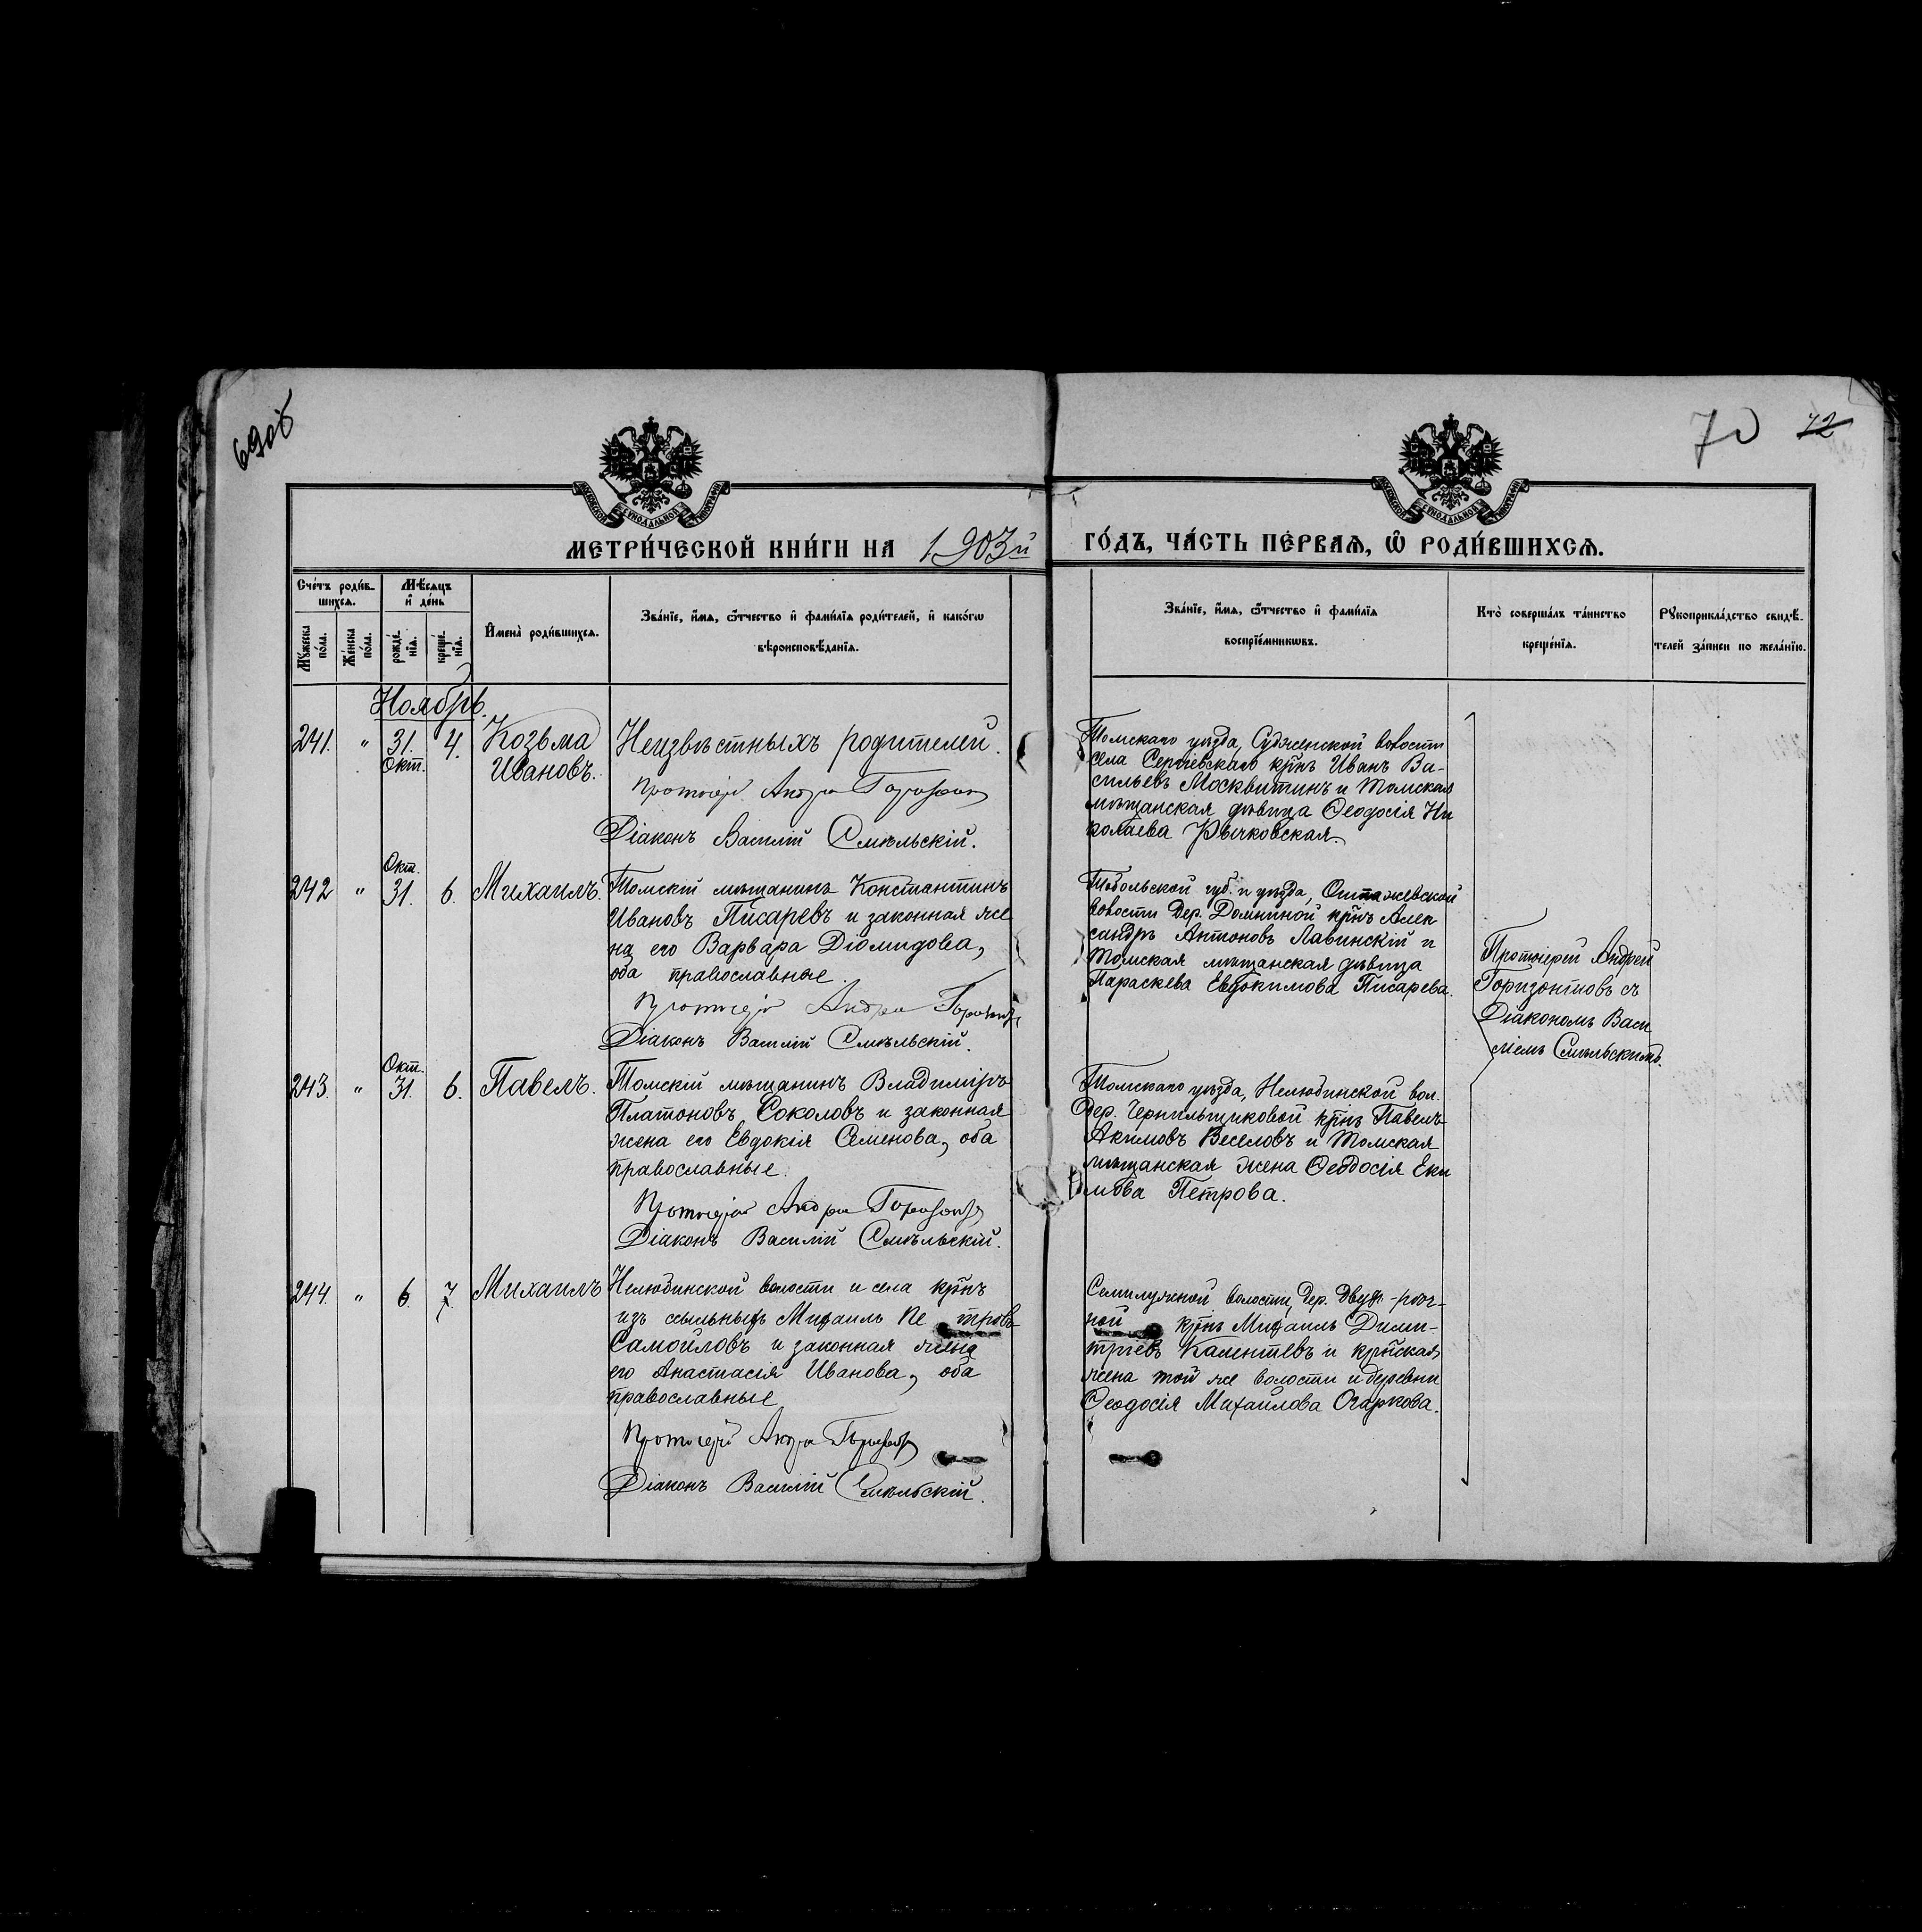 69об
70
72
МЕТРИ́ЧЕСКОЙ КНИ́ГИ НА 1903й ГО́ДЪ, ЧА́СТЬ ПЕ́РВАѦ, Ѽ РОДИ́ВШИХСѦ.
Сче́тъ роди́в-
шихсѧ.
Мꙋ́жеска по́ла.
Же́нска по́ла.
Мѣ́сѧцъ
и҆ де́нь
рожде́-
нїѧ.
креще́-
нїѧ.
И҆мена̀ роди́вшихсѧ.
Зва́нїе, и҆́мѧ, ѻ҆́тчество и҆ фами́лїѧ роди́телей, и҆ како́гѡ
вѣроисповѣ́данїѧ.
Зва́нїе, и҆́мѧ, ѻ҆́тчество и҆ фами́лїѧ
воспрїе́мникѡвъ.
Кто̀ соверша́лъ та́инство
креще́нїѧ.
Рꙋкоприкла́дство свидѣ́-
телей за́писи по жела́нїю.
Ноябрь.
241. " 31. Окт. 4. Козьма
Ивановъ.
Неизвѣстныхъ родителей.
Протоіерей Андрей Горизонтовъ
Діаконъ Василій Смѣльскій.
Томскаго уѣзда, Судженской волости
села Сергіевскаго кр͠нъ Иванъ Ва-
сильевъ Москвитинъ и Томская
мѣщанская дѣвица Ѳеодосія Ни
колаева Рычковская.
242 " Окт. 31. 6. Михаилъ.
Томскій мѣщанинъ Константинъ
Ивановъ Писаревъ и законная же
на его Варвара Діомидова,
оба православные.
Протоіерей Андрей Горизонтовъ
Діаконъ Василій Смѣльскій.
Тобольской губ. и уѣзда,
волости Дер. Домниной кр͠нъ Алек
сандръ Антоновъ Лавинскій и
Томская мѣщанская дѣвица
Параскева Евдокимова Писарева.
Протоіерей Андрей
Горизонтовъ съ
Діакономъ Васи
ліемъ Смѣльскимъ.
243. " Окт. 31. 6. Павелъ.
Томскій мѣщанинъ Владиміръ
Платоновъ Соколовъ и законная
жена его Евдокія Семенова, оба
православные.
Протоіерей Андрей Горизонтовъ
Діаконъ Василій Смѣльскій.
Томскаго уѣзда, Нелюбинской вол.
Дер. Чернильщиковой кр͠нъ Павелъ
Акимовъ Веселовъ и Томская
мѣщанская жена Ѳеодосія Еки
мова Петрова.
244. " 6. 7. Михаилъ
Нелюбинской волости и села кр͠нъ
изъ ссыльныхъ Михаилъ Пе тровъ
Самойловъ и законная жена
его Анастасія Иванова, оба
православные
Протоіерей Андрей Горизонтовъ
Діаконъ Василій Смѣльскій.
Семилужной волости, Дер. Двух-рѣч-
ной кр͠нъ Михаилъ Дими-
тріевъ и кр͠нская
жена той же волости и деревни
Ѳеодосія Михайлова Огаркова.